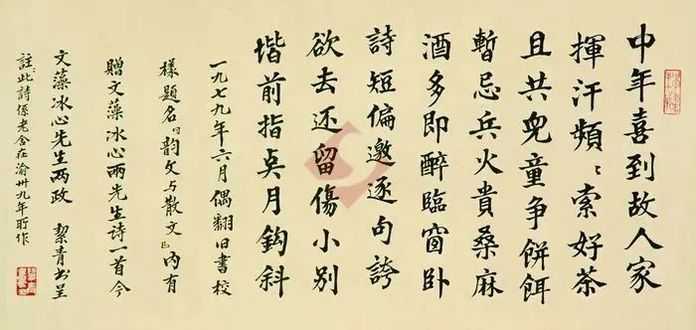 中年喜到故人家
揮汗頻〻索好茶
且共兒童爭餅餌
暫忌兵火貴桑麻
酒多即醉臨窗臥
詩短偏邀逐句誇
欲去还留傷小別
堦前指奌月鈎斜
一九七九年六月偶翻旧書校
樣題名「韵文与散文」内有
贈文藻冰心兩先生詩一首今
文藻冰心先生兩政 絜青书呈
註:此詩係老舍在渝卅九年所作